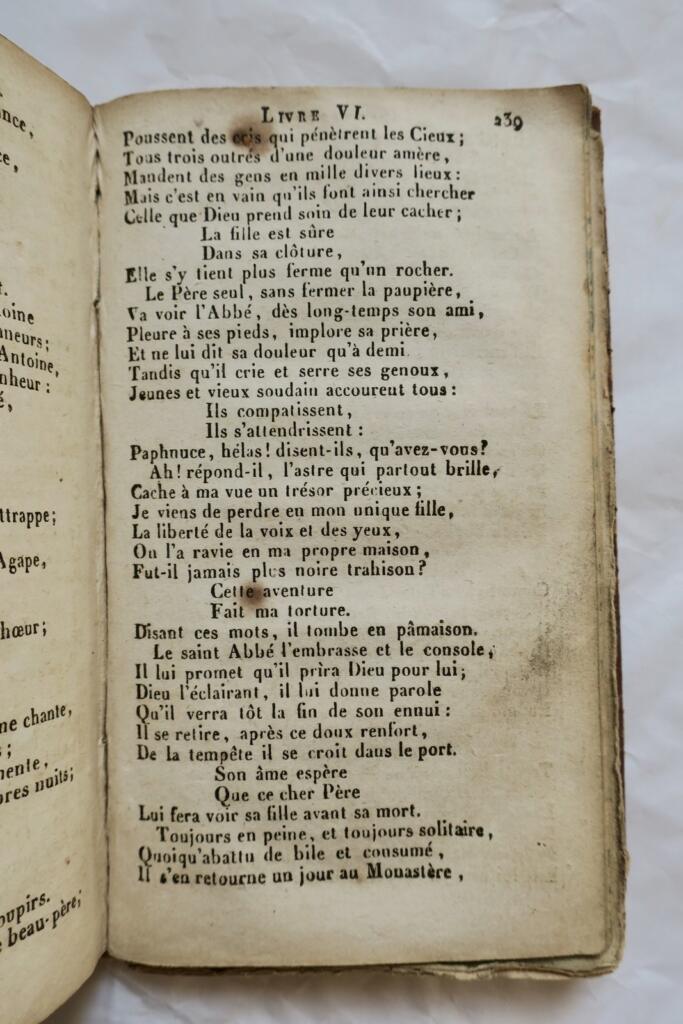 nce,
ce,
t.
oine
neurs;
Antoine,
nheur :
é,
ttrappe;
Agape,
hœur;
ne chante,
s ;
mente,
ores nuits;
oupirs.
beau-père;
LIVRE VI.
239
Poussent des cris qui pénètrent les Cieux ;
Tous trois outrés d'une douleur amère,
Mandent des gens en mille divers lieux :
Mais c'est en vain qu'ils font ainsi chercher
Celle que Dieu prend soin de leur cacher ;
La fille est sûre
Dans sa clôture,
Elle s'y tient plus ferme qu'un rocher.
Le Père seul, sans fermer la paupière,
Va voir l'Abbé, dès long-temps son ami,
Pleure à ses pieds, implore sa prière,
Et ne lui dit sa douleur qu'à demi.
Tandis qu'il crie et serre ses genoux,
Jeunes et vieux soudain accourent tous :
Ils compatissent,
Ils s'attendrissent :
Paphnuce, hélas! disent-ils, qu'avez-vous?
Ah! répond-il, l'astre qui partout brille,
Cache à ma vue un trésor précieux ;
Je viens de perdre en mon unique fille,
La liberté de la voix et des yeux,
On l'a ravie en ma propre maison,
Fut-il jamais plus noire trahison?
Cette aventure
Fait ma torture.
Disant ces mots, il tombe en pâmaison.
Le saint Abbé l'embrasse et le console,
Il lui promet qu'il prîra Dieu pour lui;
Dieu l'éclairant, il lui donne parole
Qu'il verra tôt la fin de son ennui :
Il se retire, après ce doux renfort,
De la tempête il se croit dans le port.
Son âme espère
Que ce cher Père
Lui fera voir sa fille avant sa mort.
Toujours en peine, et toujours solitaire,
Quoiqu'abattu de bile et consumé,
Il s'en retourne un jour au Monastère,